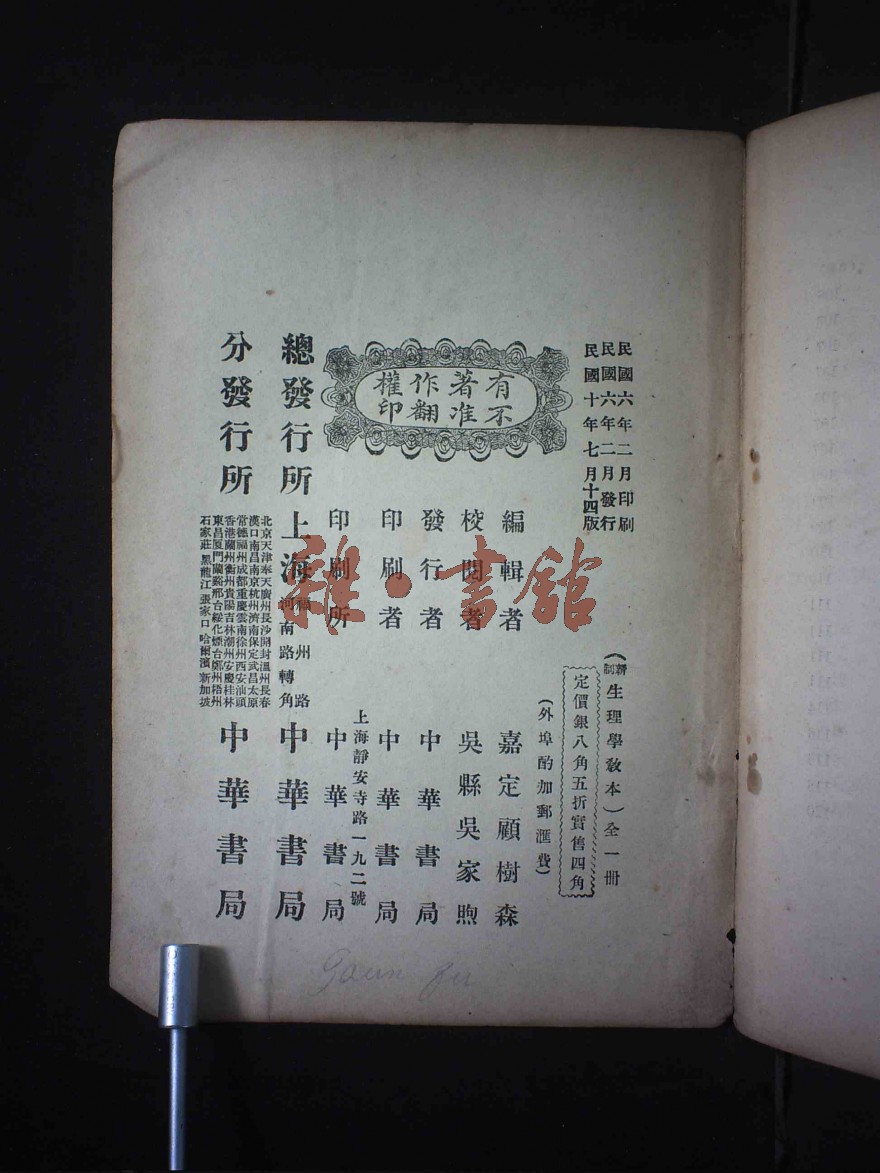 民國六年二月印刷
民國六年二月發行
民國十年七月十四版
(新制生理學教本)全一冊
定價銀八角五折實售四角
(外埠酌加郵滙費)
有著作權
不准翻印
編輯者 嘉定顧樹森
校閱者 吳縣吳家煦
發行者 中華書局
印刷者 中華書局
上海靜安寺路一九二號
印刷所 中華書局
總發行所 上海福州路河南路轉角 中華書局
分發行所
北京天津奉天廣州長沙開封溫州長春
漢口南昌南京杭州濟南保定武昌太原
常德福州成都重慶雲南徐州西安汕頭
香港蘭州衢州貴陽吉林潮州安慶桂林
東昌厦門蘭谿邢台綏化煙台鄭州梧州
石家莊黑龍江張家口哈爾濱新加坡
中華書局
雜·書館